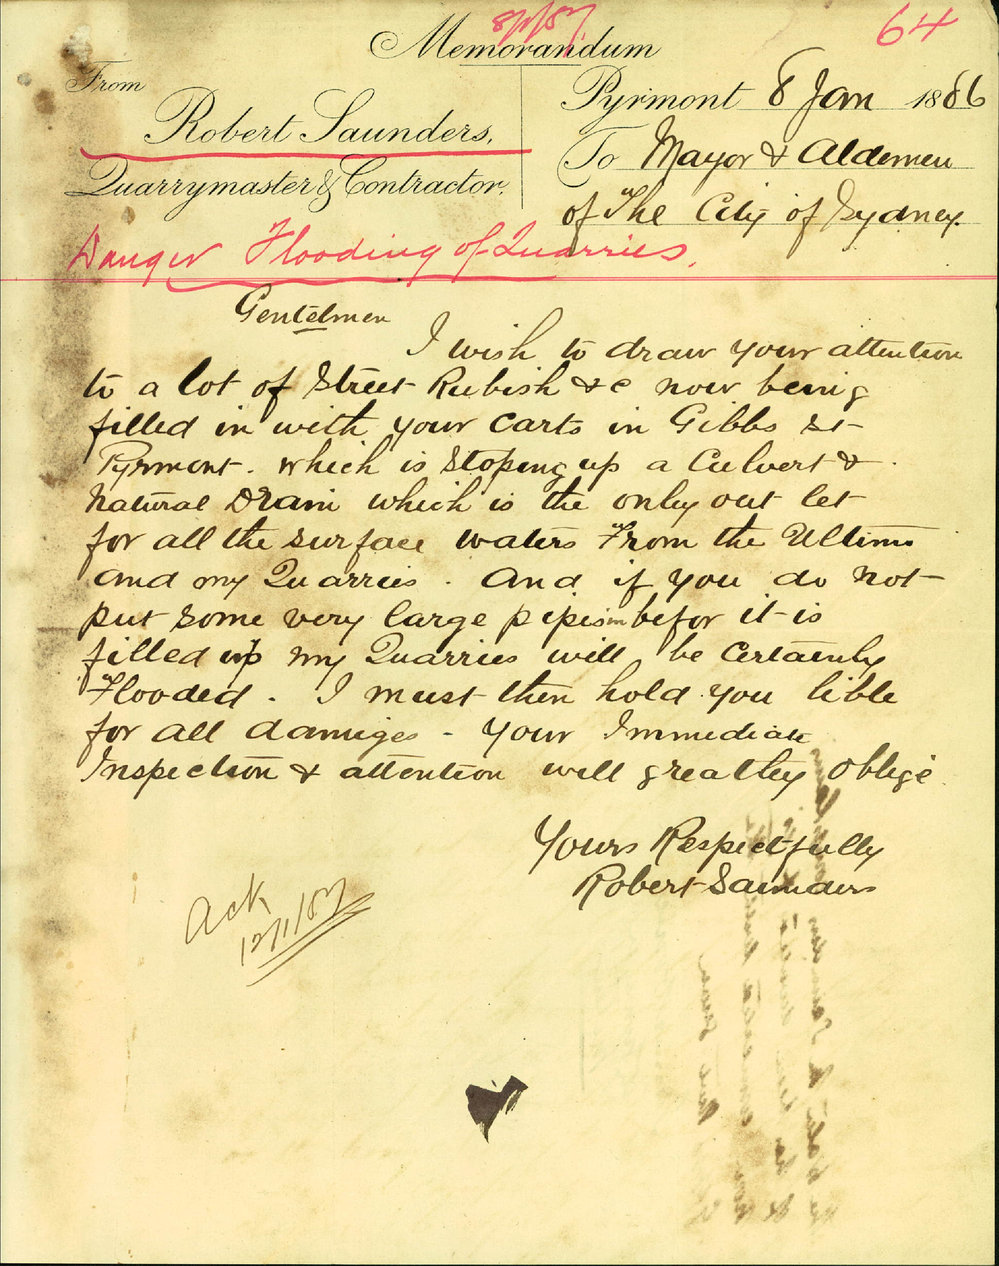 8/1/87
64
Memorandum
From
Robert Saunders,
Quarrymaster & Contractor.
Pyrmont 8 Jan 1886
To Mayor & Aldemen
of The City of Sydney.
Danger Flooding of Quarries.
Gentelmen
I wish to draw your attention
to a lot of Street Rubish &c now being
filled in with your Carts in Gibbs St
Pyrmont. which is Stoping up a Culvert &
Natural Drain which is the only out let
for all the surface waters From the Ultimo
and my Quarries. And if you do not
put some very large pipes in befor it is
filled up my Quarries will be Certainly
Flooded. I must then hold you lible
for all damiges - Your Immediate
Inspection & attention will greatley Oblige
Yours Respectfully
Robert Saunders
Ack
12/1/87